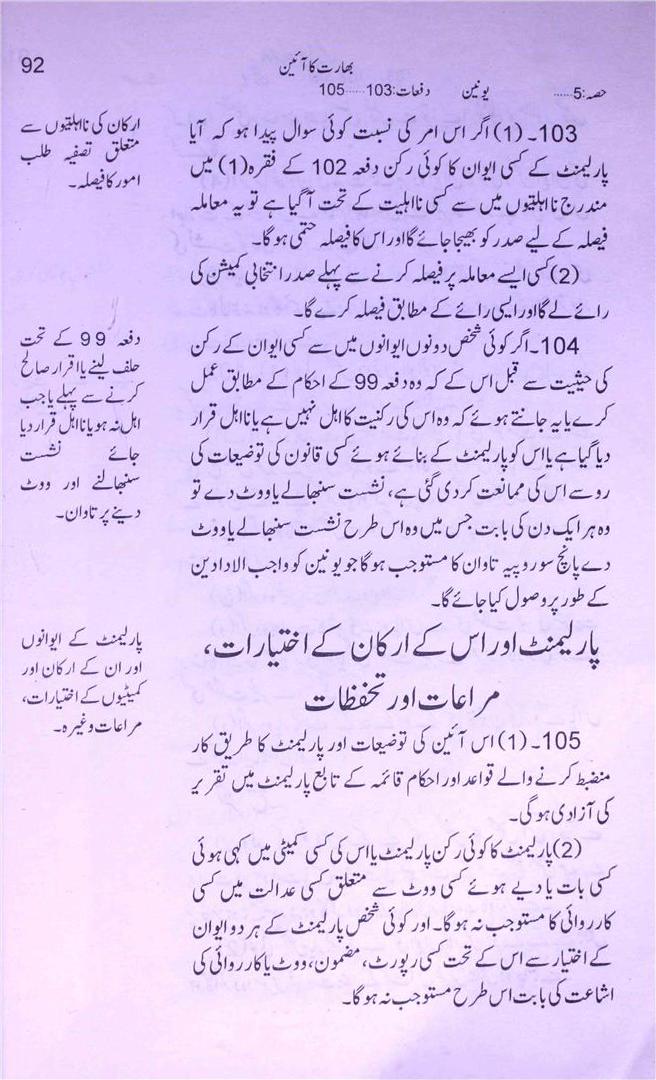 92
بھارت کا آئین
حصہ:5......
یونین
دفعات:103......105
103۔(1) اگر اس امر کی نسبت کوئی سوال پیدا ہو کہ آیا
پارلیمنٹ کے کسی ایوان کا کوئی رکن دفعہ 102 کے فقرہ(1) میں
مندرج نااہلیتوں میں سے کسی نااہلیت کے تحت آگیا ہے تو یہ معاملہ
فیصلہ کے لیے صدر کو بھیجا جائے گا اور اس کا فیصلہ حتمی ہوگا۔
(2) کسی ایسے معاملہ پر فیصلہ کرنے سے پہلے صدر انتخابی کمیشن کی
رائے لے گا اور ایسی رائے کے مطابق فیصلہ کرے گا۔
ارکان کی نااہلیتوں سے
متعلق تصفیہ طلب
امور کا فیصلہ۔
104۔ اگر کوئی شخص دونوں ایوانوں میں سے کسی ایوان کے رکن
کی حیثیت سے قبل اس کے کہ وہ دفعہ 99 کے احکام کے مطابق عمل
کرے یا یہ جانتے ہوئے کہ وہ اس کی رکنیت کا اہل نہیں ہے یا نااہل قرار
دیا گیا ہے یا اس کو پارلیمنٹ کے بنائے ہوئے کسی قانون کی توضیعات کی
رو سے اس کی ممانعت کردی گئی ہے، نشست سنبھالے یا ووٹ دے تو
وہ ہر ایک دن کی بابت جس میں وہ اس طرح نشست سنبھالے یا ووٹ
دے پانچ سو روپیہ تاوان کا مستوجب ہوگا جو یونین کو واجب الادا دین
کے طور پر وصول کیا جائے گا۔
دفعہ 99 کے تحت
حلف لینے یا اقرار صالح
کرنے سے پہلے یا جب
اہل نہ ہو یا نااہل قرار دیا
جائے نشست
سنبھالنے اور ووٹ
دینے پر تاوان۔
پارلیمنٹ اور اس کے ارکان کے اختیارات،
مراعات اور تحفظات
105۔(1) اس آئین کی توضیعات اور پارلیمنٹ کا طریق کار
منضبط کرنے والے قواعد اور احکام قائمہ کے تابع پارلیمنٹ میں تقریر
کی آزادی ہوگی۔
(2) پارلیمنٹ کا کوئی رکن پارلیمنٹ یا اس کی کسی کمیٹی میں کہی ہوئی
کسی بات یا دیے ہوئے کسی ووٹ سے متعلق کسی عدالت میں کسی
کارروائی کا مستوجب نہ ہوگا۔ اور کوئی شخص پارلیمنٹ کے ہر دو ایوان
کے اختیار سے اس کے تحت کسی رپورٹ، مضمون، ووٹ یا کارروائی کی
اشاعت کی بابت اس طرح مستوجب نہ ہوگا۔
پارلیمنٹ کے ایوانوں
اور ان کے ارکان اور
کمیٹیوں کے اختیارات،
مراعات وغیرہ۔